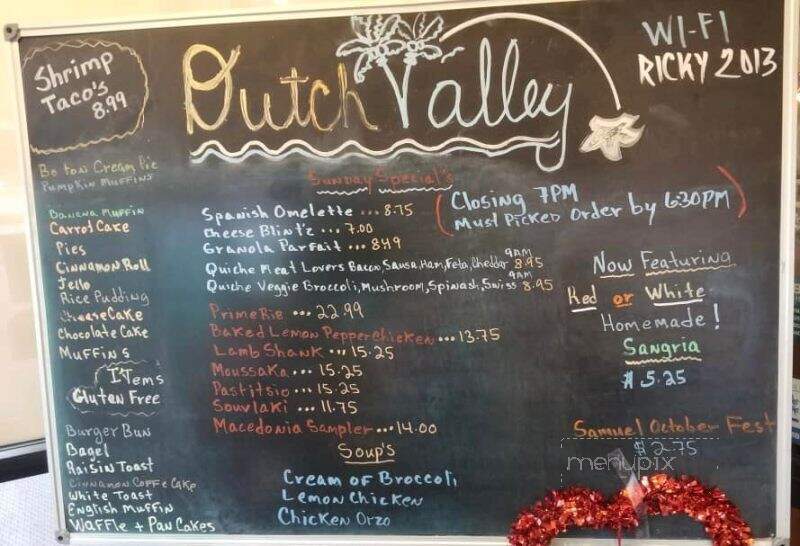 Shrimp
Taco's
8.99
Dutch Valley
WI-FI
RICKY 2013
Boston Cream Pie
Pumpkin Muffins
Banana Muffin
Carrot Cake
Pies
Cinnamon Roll
Jello
Rice Pudding
Cheese Cake
Chocolate Cake
Muffins
I'Tems
Gluten Free
Burger Bun
Bagel
Raisin Toast
Cinnamon Coffe Cake
White Toast
English Muffin
Waffle + Pan Cakes
Sunday Special's
Spanish Omelette ... 8.75
Cheese Blint'z ... 7.00
Granola Parfait ... 8.49
9AM
Quiche Meat Lovers Bacon, Sausa, Ham, Feta, Cheddar 8.95
9AM
Quiche Veggie Broccoli, Mushroom, Spinash, Swiss 8.95
Prime Rib ... 22.99
Baked Lemon Pepper Chicken ... 13.75
Lamb Shank ... 15.25
Moussaka ... 15.25
Pastitsio ... 15.25
Souvlaki ... 11.75
Macedonia Sampler ... 14.00
Soup's
Cream of Broccoli
Lemon Chicken
Chicken Orzo
(Closing 7PM
Must Picked Order by 6:30PM)
Now Featuring
Red or White
Homemade!
Sangria
$ 5.25
Samuel October Fest
$ 2.75
menupix